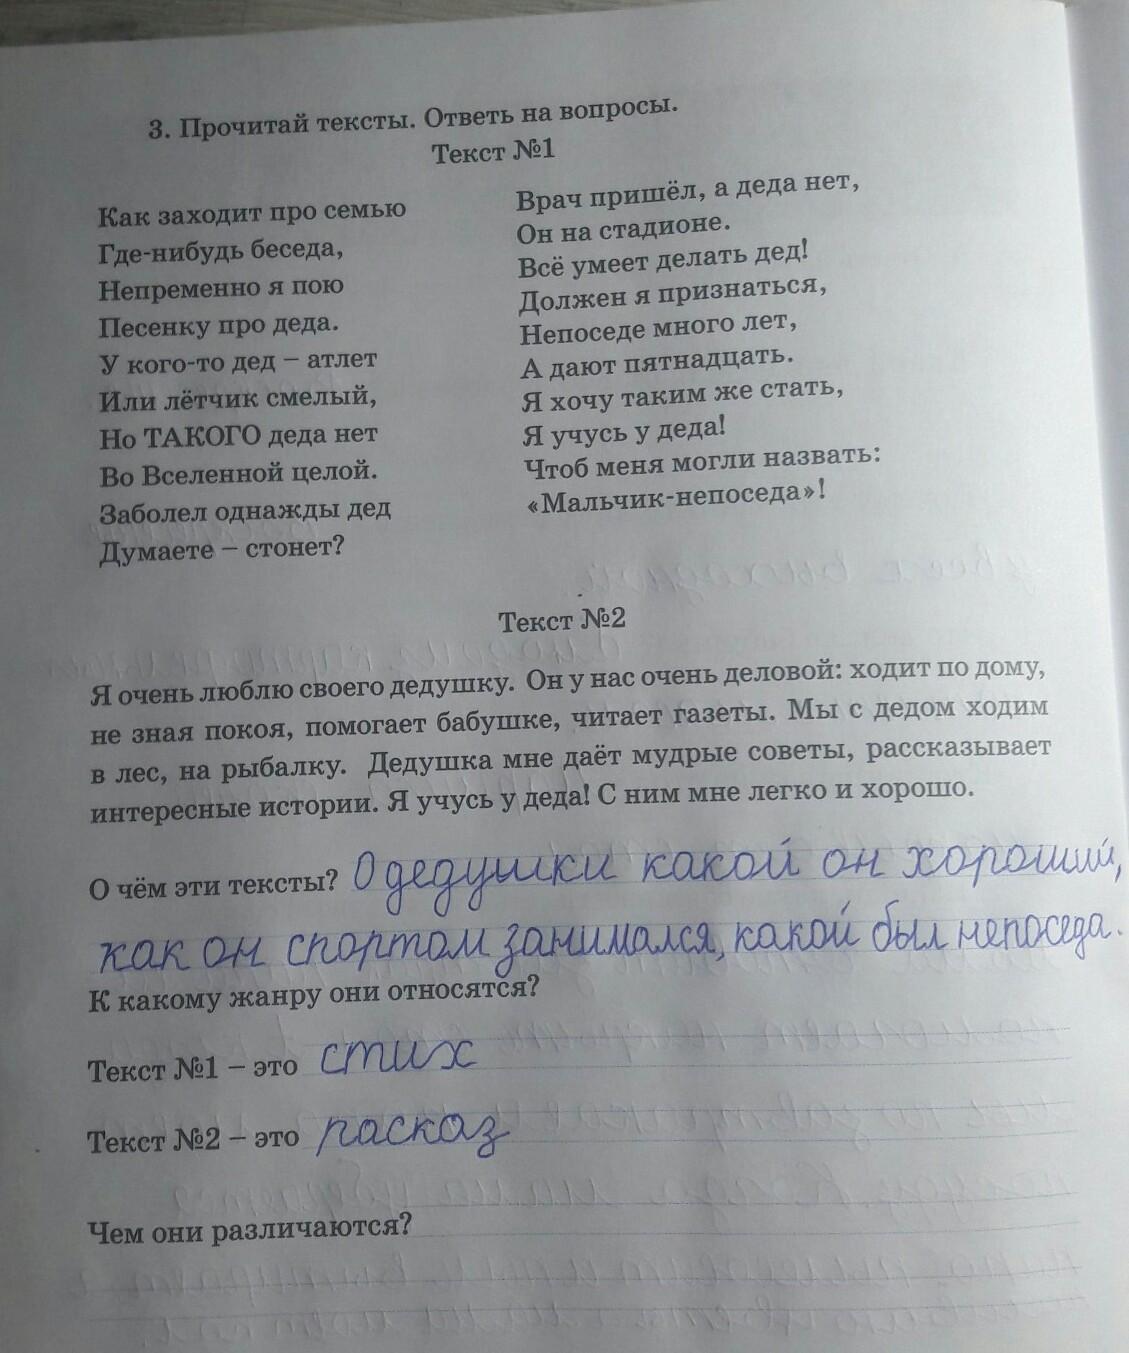 3. Прочитай тексты. Ответь на вопросы.
Текст №1
Как заходит про семью
Где-нибудь беседа,
Непременно я пою
Песенку про деда.
У кого-то дед – атлет
Или лётчик смелый,
Но ТАКОГО деда нет
Во Вселенной целой.
Заболел однажды дед
Думаете – стонет?
Врач пришёл, а деда нет,
Он на стадионе.
Всё умеет делать дед!
Должен я признаться,
Непоседе много лет,
А дают пятнадцать.
Я хочу таким же стать,
Я учусь у деда!
Чтоб меня могли назвать:
«Мальчик-непоседа»!
Текст №2
Я очень люблю своего дедушку. Он у нас очень деловой: ходит по дому,
не зная покоя, помогает бабушке, читает газеты. Мы с дедом ходим
в лес, на рыбалку. Дедушка мне даёт мудрые советы, рассказывает
интересные истории. Я учусь у деда! С ним мне легко и хорошо.
О чём эти тексты? О дедушки какой он хороший,
как он спортом занимался, какой был непоседа.
К какому жанру они относятся?
Текст №1 – это стих
Текст №2 – это расказ
Чем они различаются?